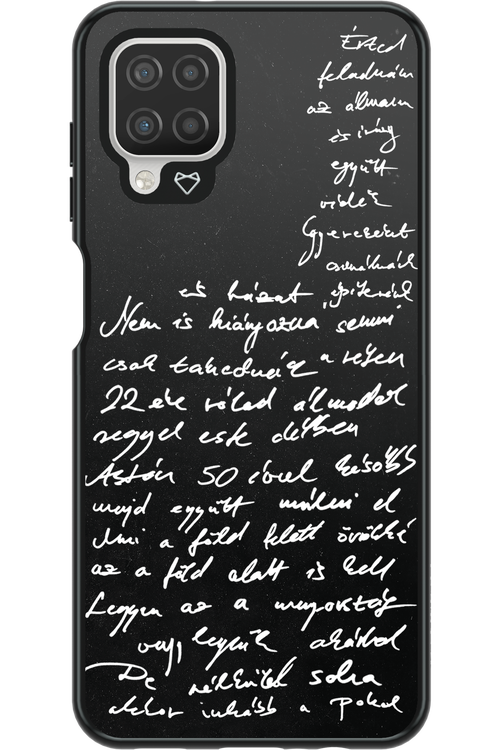 Érted
feladnám
az álmam
és írny
együtt
vidék
Gyereket
csinálnák
és házat építenék
Nem is hiányozna semmi
csak takednék a réten
22 éve rólad álmodok
reggel este délben
Aztán 50 évvel később
majd együtt múlni el
Ami a föld felett örökké
az a föld alatt is kell
Legyen az a mennyország
vagy legyünk akárhol
De nélküled soha
akkor inkább a pokol